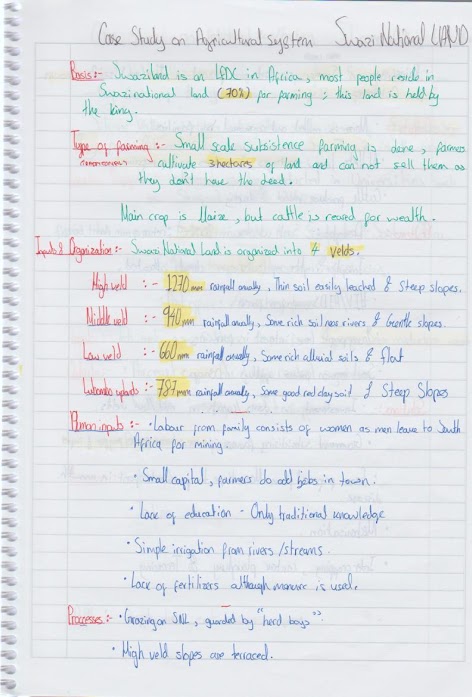 Case Study on Agricultural system Swazi National LAND
Basis:- Swaziland is an LEDC in Africa, most people reside in
Swazi national land (70%) for farming; this land is held by
the king.
Type of farming :- Small scale subsistence farming is done, farmers
cultivate 3hectares of land and can not sell them as
they don't have the deed.
Main crop is Maize, but cattle is reared for wealth.
Inputs & Organization:- Swazi National Land is organized into 4 velds.
High veld :- 1270mm rainfall anually, Thin soil easily leached & Steep slopes.
Middle veld :- 940mm rainfall anually, Some rich soil near rivers & Gentle slopes.
Low veld :- 660mm rainfall anually, Some rich alluvial soils & flat
Lubombo uplands :- 787mm rainfall anually, Some good red clay soil & Steep Slopes
Human inputs :- • Labour from family consists of women as men leave to South
Africa for mining
• Small capital, farmers do odd jobs in town.
• Lack of education - Only traditional knowledge
• Simple irrigation from rivers / streams.
• Lack of fertilizers although manure is used.
Processes :- • Grazing on SNL, guarded by "herd boys".
• High veld slopes are terraced.